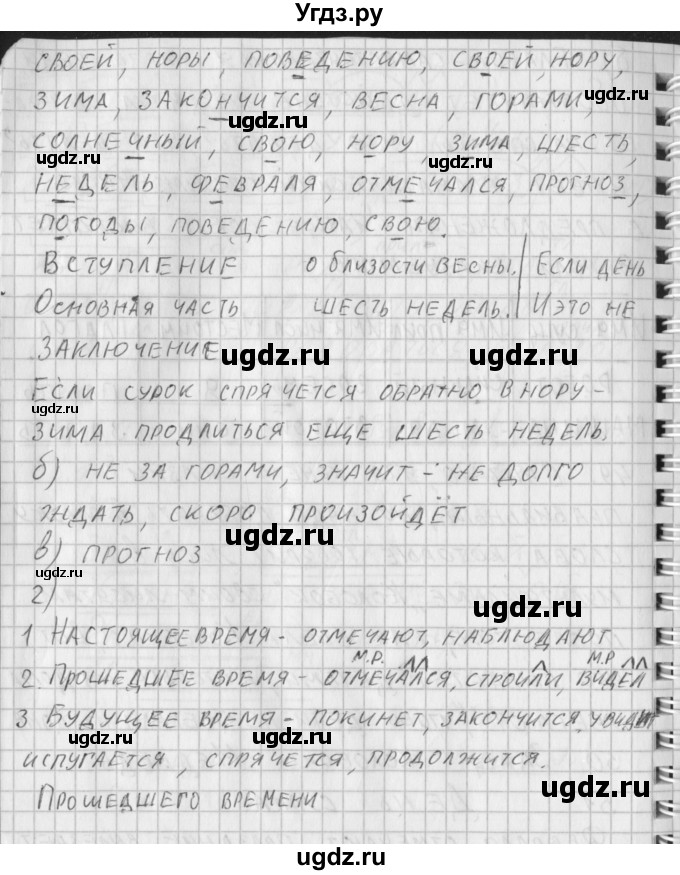 Угдз.ру
СВОЕЙ, НОРЫ, ПОВЕДЕНИЮ, СВОЕЙ, НОРУ,
ЗИМА, ЗАКОНЧИТСЯ, ВЕСНА, ГОРАМИ,
ugdz.ru
СОЛНЕЧНЫЙ, СВОЮ, НОРУ, ЗИМА, ШЕСТЬ,
ugdz.ru ugdz.ru
НЕДЕЛЬ, ФЕВРАЛЯ, ОТМЕЧАЛСЯ, ПРОГНОЗ,
ПОГОДЫ, ПОВЕДЕНИЮ, СВОЮ.
ВСТУПЛЕНИЕ О БЛИЗОСТИ ВЕСНЫ. ЕСЛИ ДЕНЬ
ОСНОВНАЯ ЧАСТЬ ШЕСТЬ НЕДЕЛЬ. И ЭТО НЕ
ЗАКЛЮЧЕНИЕ
ugdz.ru ugdz.ru
ЕСЛИ СУРОК СПРЯЧЕТСЯ ОБРАТНО В НОРУ -
ugdz.ru
ЗИМА ПРОДЛИТЬСЯ ЕЩЕ ШЕСТЬ НЕДЕЛЬ.
б) НЕ ЗА ГОРАМИ, ЗНАЧИТ - НЕ ДОЛГО
ЖДАТЬ, СКОРО ПРОИЗОЙДЁТ
ugdz.ru
в) ПРОГНОЗ
ugdz.ru
г)
ugdz.ru
1 НАСТОЯЩЕЕ ВРЕМЯ - ОТМЕЧАЮТ, НАБЛЮДАЮТ
М.Р. М.Р.
2. ПРОШЕДШЕЕ ВРЕМЯ - ОТМЕЧАЛСЯ, СТРОИЛИ, ВИДЕЛ
3 БУДУЩЕЕ ВРЕМЯ - ПОКИНЕТ, ЗАКОНЧИТСЯ, УВИДИТ
ugdz.ru ugdz.ru
ИСПУГАЕТСЯ, СПРЯЧЕТСЯ, ПРОДОЛЖИТСЯ.
ugdz.ru
ПРОШЕДШЕГО ВРЕМЕНИ
ugdz.ru